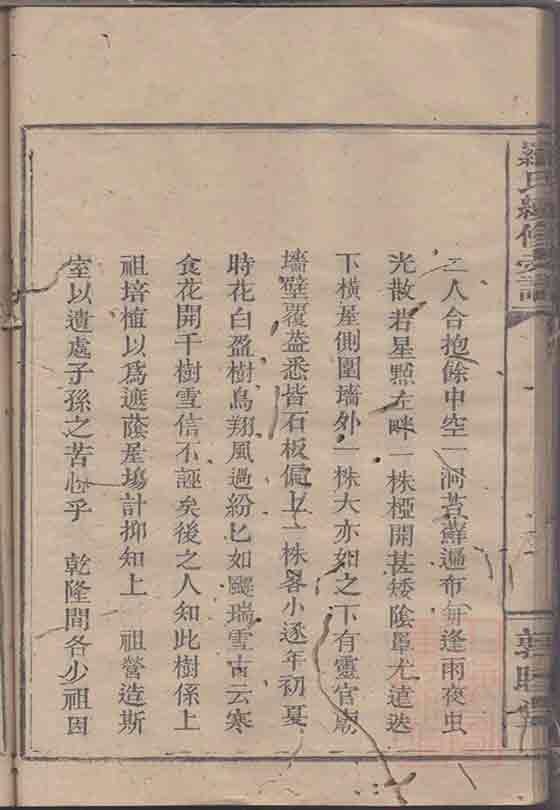 羅氏續修家譜
二人合抱餘中空一洞苔蘚遍布每逢雨夜虫
光散若星㸃左畔一株椏開甚矮陰單尤遠迭
下橫屋側圍墻外一株大亦如之下有靈官廟
墻壁覆葢悉皆石板偏上一株畧小逐年初夏
時花白盈樹鳥翔風過紛匕如飄瑞雪古云寒
食花開千樹雪信不誣矣後之人知此樹係上
祖培植以爲遮蔭屋塲計抑知上 祖營造斯
室以遺處子孫之苦心乎 乾隆間各少祖因